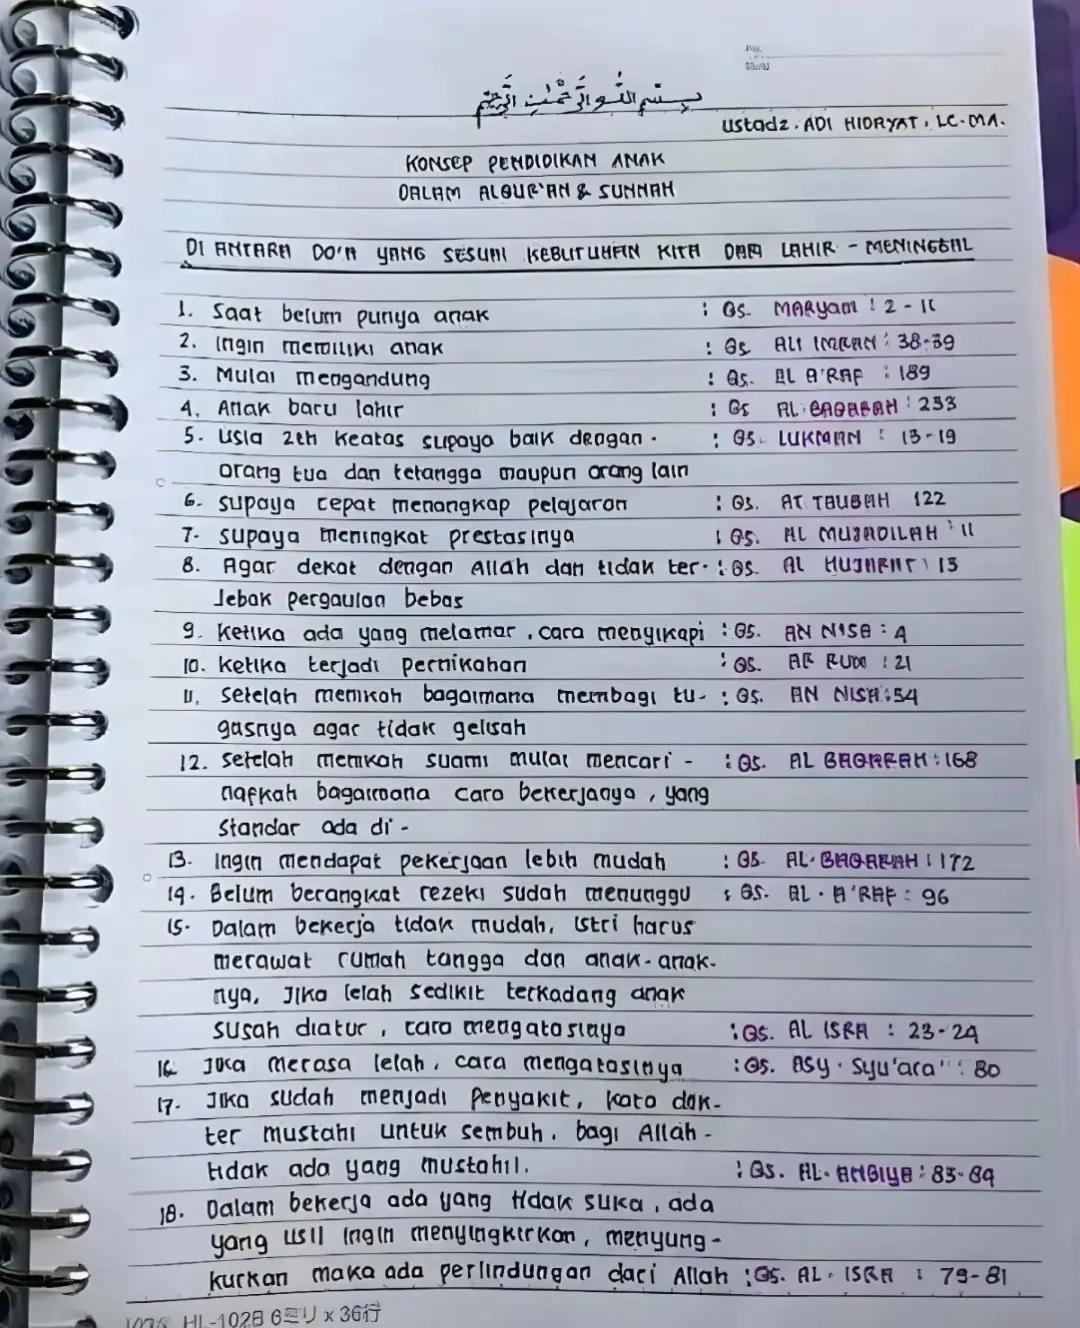 بِسْمِ اللَّهِ الرَّحْمٰنِ الرَّحِيْمِ
ustadz. ADI HIDAYAT, LC.MA.
KONSEP PENDIDIKAN ANAK
DALAM ALQUR'AN & SUNNAH
DI ANTARA DO'A YANG SESUAI KEBUTUHAN KITA DARI LAHIR - MENINGGAL
1. Saat belum punya anak : Qs. MARyam : 2 - 11
2. Ingin memiliki anak : Qs ALI IMRAN : 38-39
3. Mulai mengandung : Qs. AL A'RAF : 189
4. Anak baru lahir : Qs AL. BAQARAH : 233
5. Usia 2th keatas supaya baik dengan - : Qs. LUKMAN : 13-19
orang tua dan tetangga maupun orang lain
6. supaya cepat menangkap pelajaran : Qs. AT TAUBAH 122
7. supaya meningkat prestasinya : Qs. AL MUJADILAH : 11
8. Agar dekat dengan Allah dan tidak ter- : Qs. AL HUJARAT : 13
Jebak pergaulan bebas
9. ketika ada yang melamar, cara menyikapi : Qs. AN NISA : 4
10. ketika terjadi pernikahan : Qs. AR RUM : 21
11. setelah menikah bagaimana membagi tu- : Qs. AN NISA : 54
gasnya agar tidak gelisah
12. setelah menikah suami mulai mencari - : Qs. AL BAQARAH : 168
nafkah bagaimana cara bekerjanya, yang
Standar ada di -
13. Ingin mendapat pekerjaan lebih mudah : Qs. AL. BAQARAH : 172
14. Belum berangkat rezeki sudah menunggu : Qs. AL. A'RAF : 96
15. Dalam bekerja tidak mudah, istri harus
merawat rumah tangga dan anak-anak-
nya, Jika lelah sedikit terkadang anak
susah diatur, cara mengatasinya : Qs. AL ISRA : 23-24
16. Jika merasa lelah, cara mengatasinya : Qs. Asy. Syu'ara" : 80
17. Jika sudah menjadi Penyakit, kata dok-
ter mustahi untuk sembuh. bagi Allah -
tidak ada yang mustahil. : Qs. AL. ANBIYA : 83-84
18. Dalam bekerja ada yang tidak suka, ada
yang usil ingin menyingkirkan, menyung-
kurkan maka ada perlindungan dari Allah : Qs. AL. ISRA : 79-81